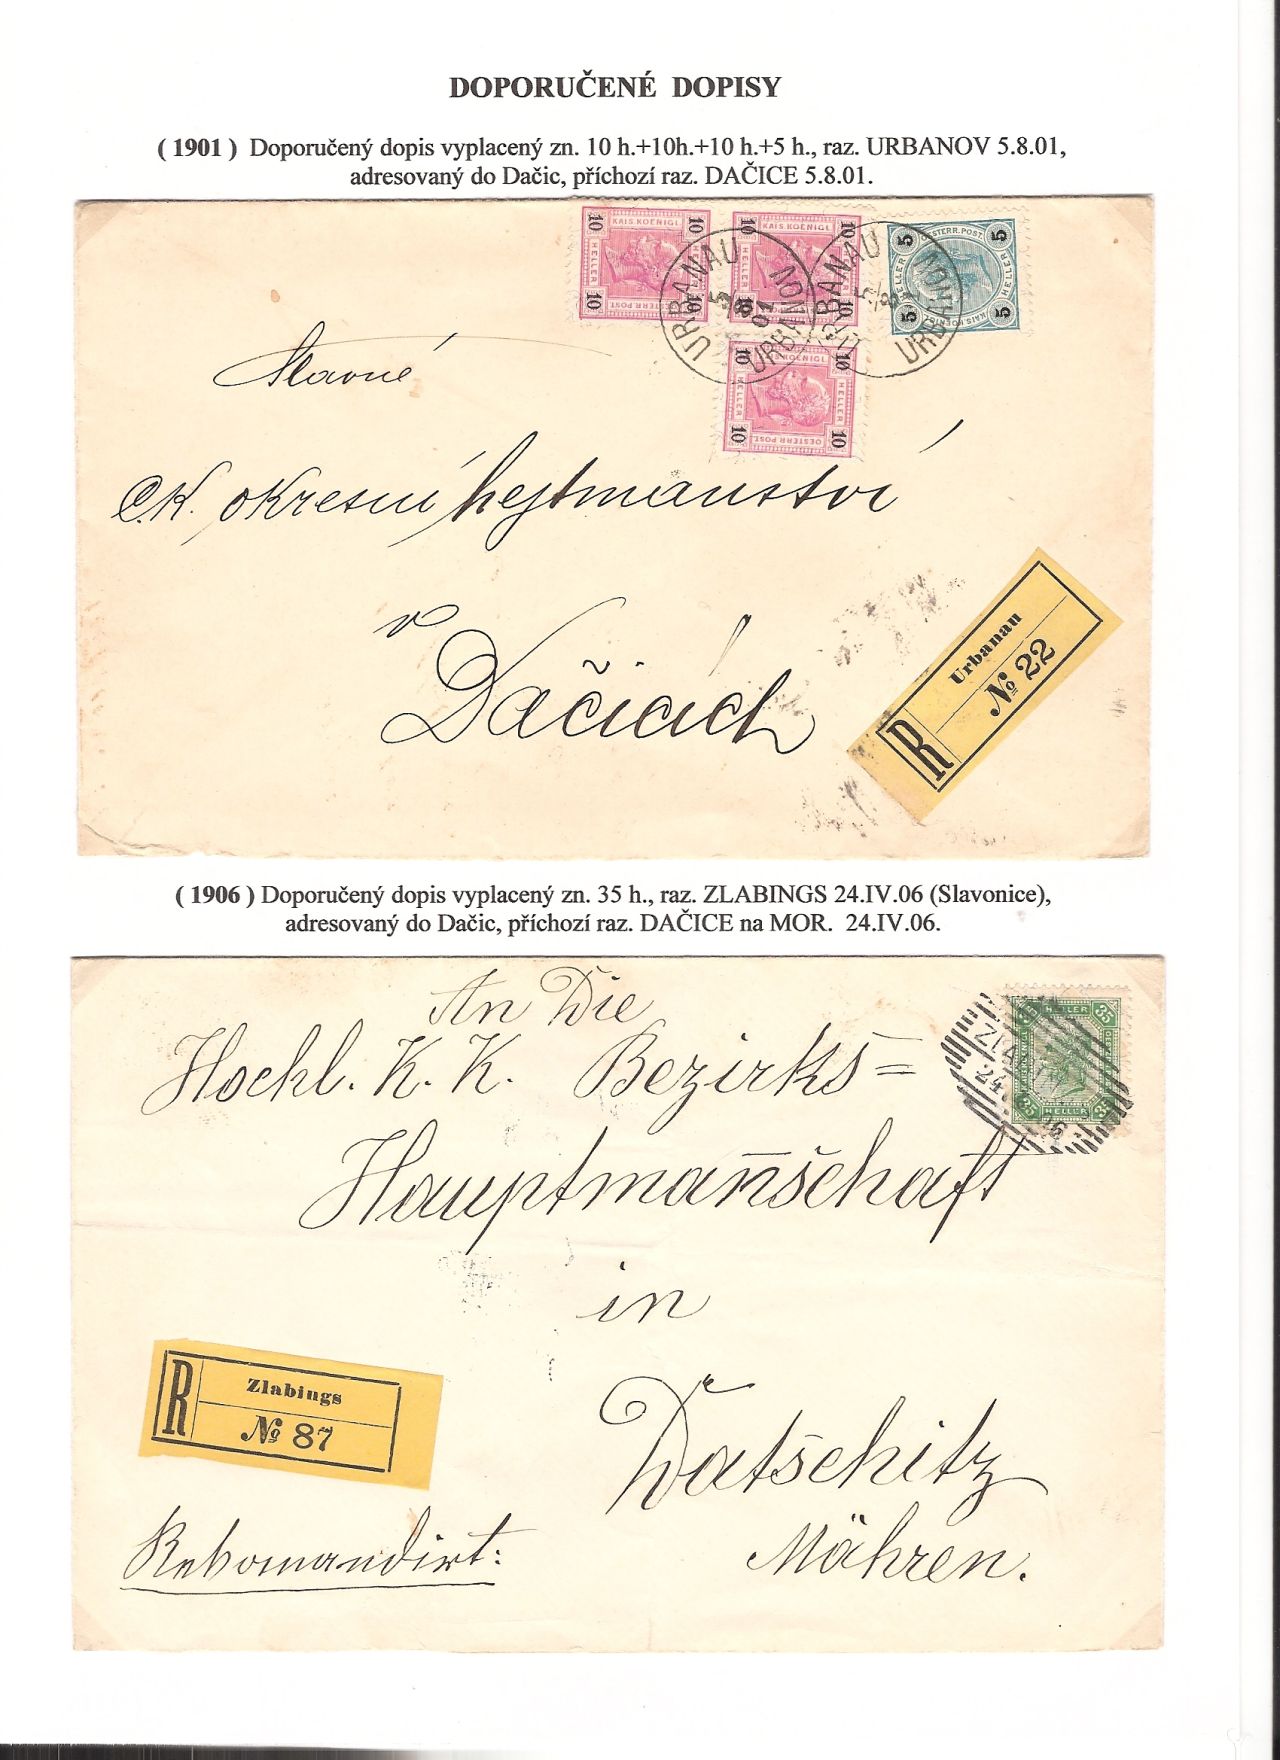 DOPORUČENÉ DOPISY
( 1901 ) Doporučený dopis vyplacený zn. 10 h.+10h.+10 h.+5 h., raz. URBANOV 5.8.01,
adresovaný do Dačic, příchozí raz. DAČICE 5.8.01.
10 KAIS KOENIGL 10
HELLER HELLER
10 OESTERR POST. 10
10 KAIS KOENIGL 10
HELLER
10 10
5 OESTERR. POST. 5
HELLER HELLER
5 KAIS KOENIGL 5
URBANAU
5/8
01
URBANOV
URBANAU
5/8
URBANOV
10 KOENIGL 10
HELLER HELLER
10 OESTERR POST. 10
Slavné
C.K. okresní hejtmanství
v
Dačicích
R
Urbanau
№ 22
( 1906 ) Doporučený dopis vyplacený zn. 35 h., raz. ZLABINGS 24.IV.06 (Slavonice),
adresovaný do Dačic, příchozí raz. DAČICE na MOR. 24.IV.06.
An Die
Hochl. K. K. Bezirks=
Hauptmanšchaft
in
Datschitz
Mähren.
HELLER 35
35 HELLER 35
R
Zlabings
№ 87
Rekomandirt: